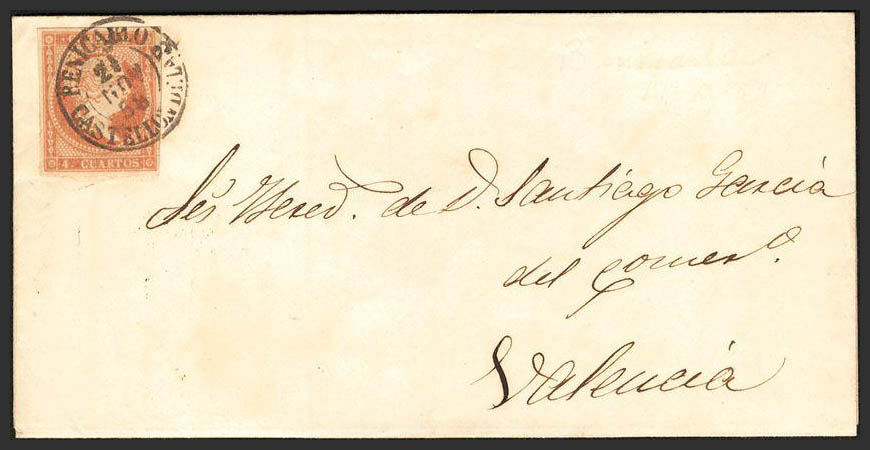 BENICARLO
21
58
CASTELLON
4 CUARTOS
Sres Hered. de D. Santiago García
del comero.
Valencia